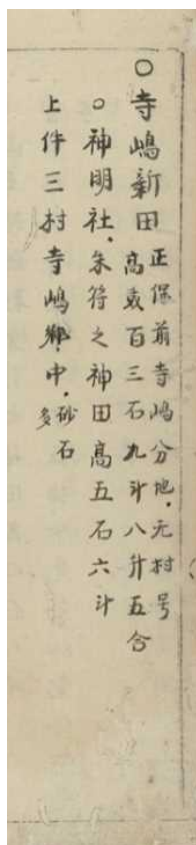 〇寺嶋新田
正保前寺嶋分地、元村号
高貳百三石九斗八升五合
〇神明社、朱符之神田高五石六斗
上件三村寺嶋郷中、砂石
多